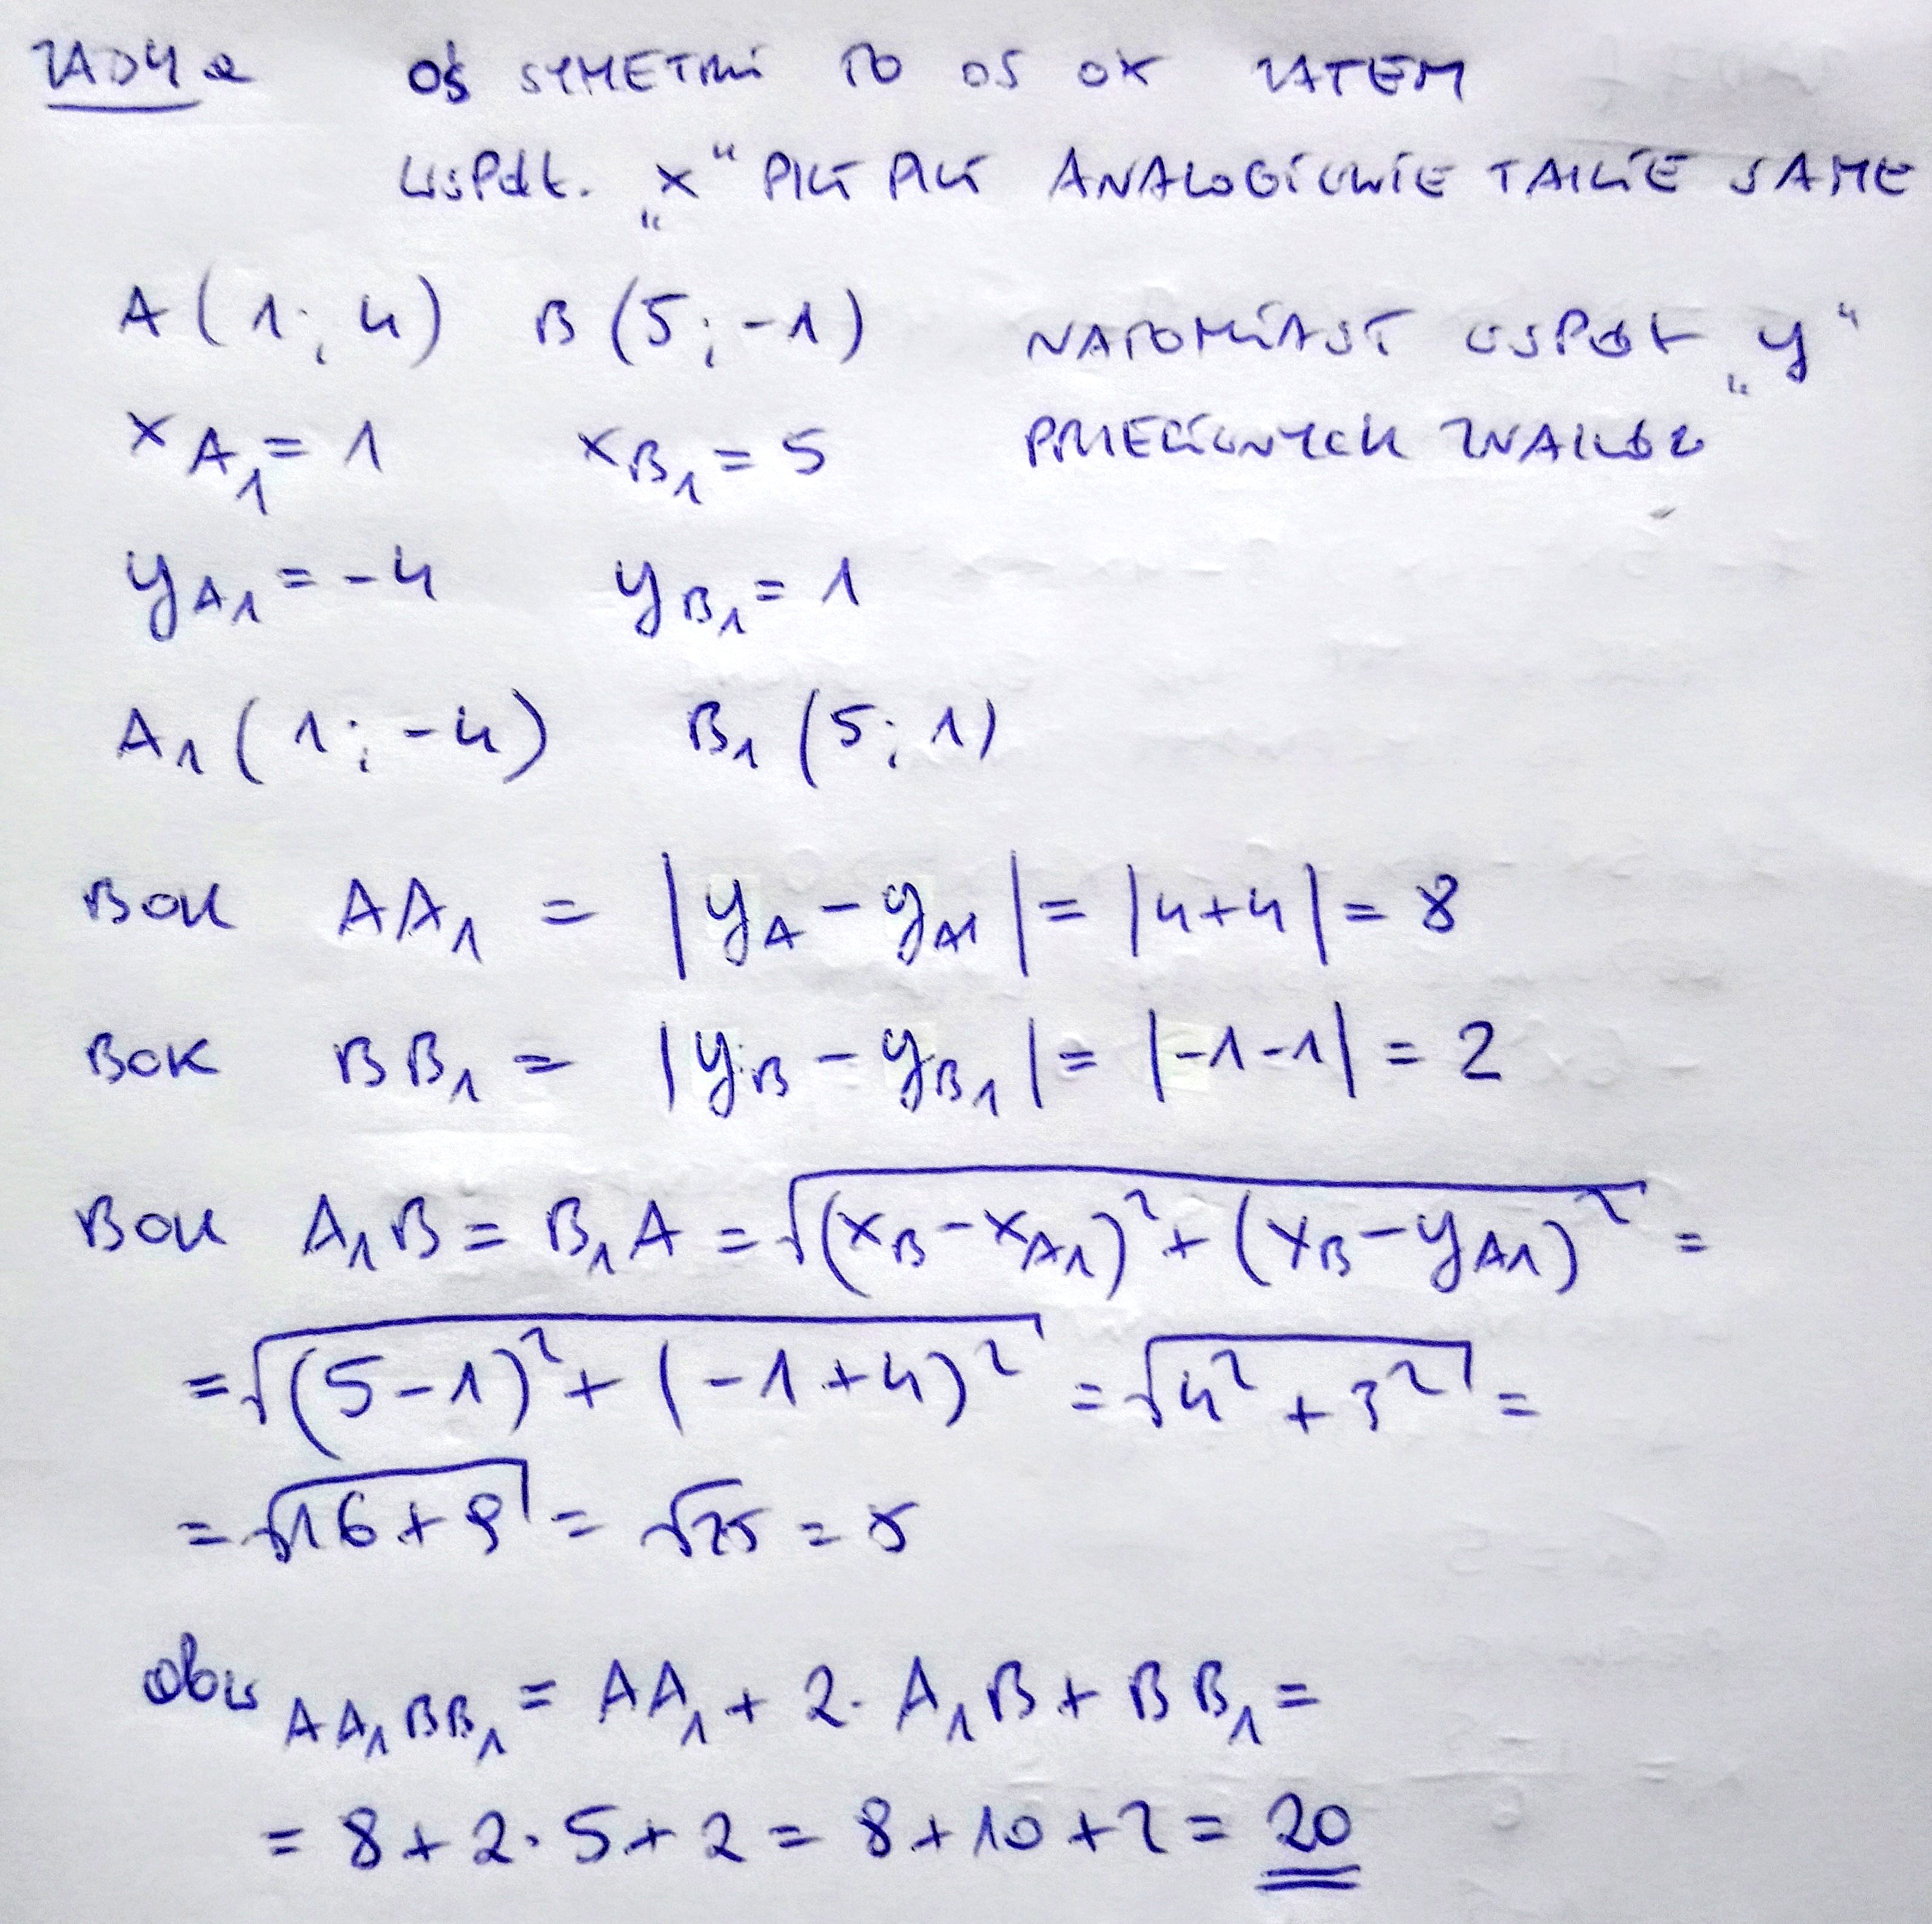 ZAD4 a OŚ SYMETRII TO OŚ OX ZATEM
WSPÓŁ. „x“ PKT PKT ANALOGICZNIE TAKIE SAME
A(1; 4) B(5; -1) NATOMIAST WSPÓŁ „y“
x_A₁ = 1 x_B₁ = 5 PRZECIWNYCH ZNAKÓW
y_A₁ = -4 y_B₁ = 1
A₁(1; -4) B₁(5; 1)
BOK AA₁ = |y_A - y_A1| = |4+4| = 8
BOK BB₁ = |y_B - y_B₁| = |-1-1| = 2
BOK A₁B = B₁A = √((x_B - x_A₁)² + (y_B - y_A₁)²) =
= √((5-1)² + (-1+4)²) = √(4² + 3²) =
= √(16+9) = √25 = 5
Obw AA₁BB₁ = AA₁ + 2· A₁B + BB₁ =
= 8 + 2·5 + 2 = 8 + 10 + 2 = 20